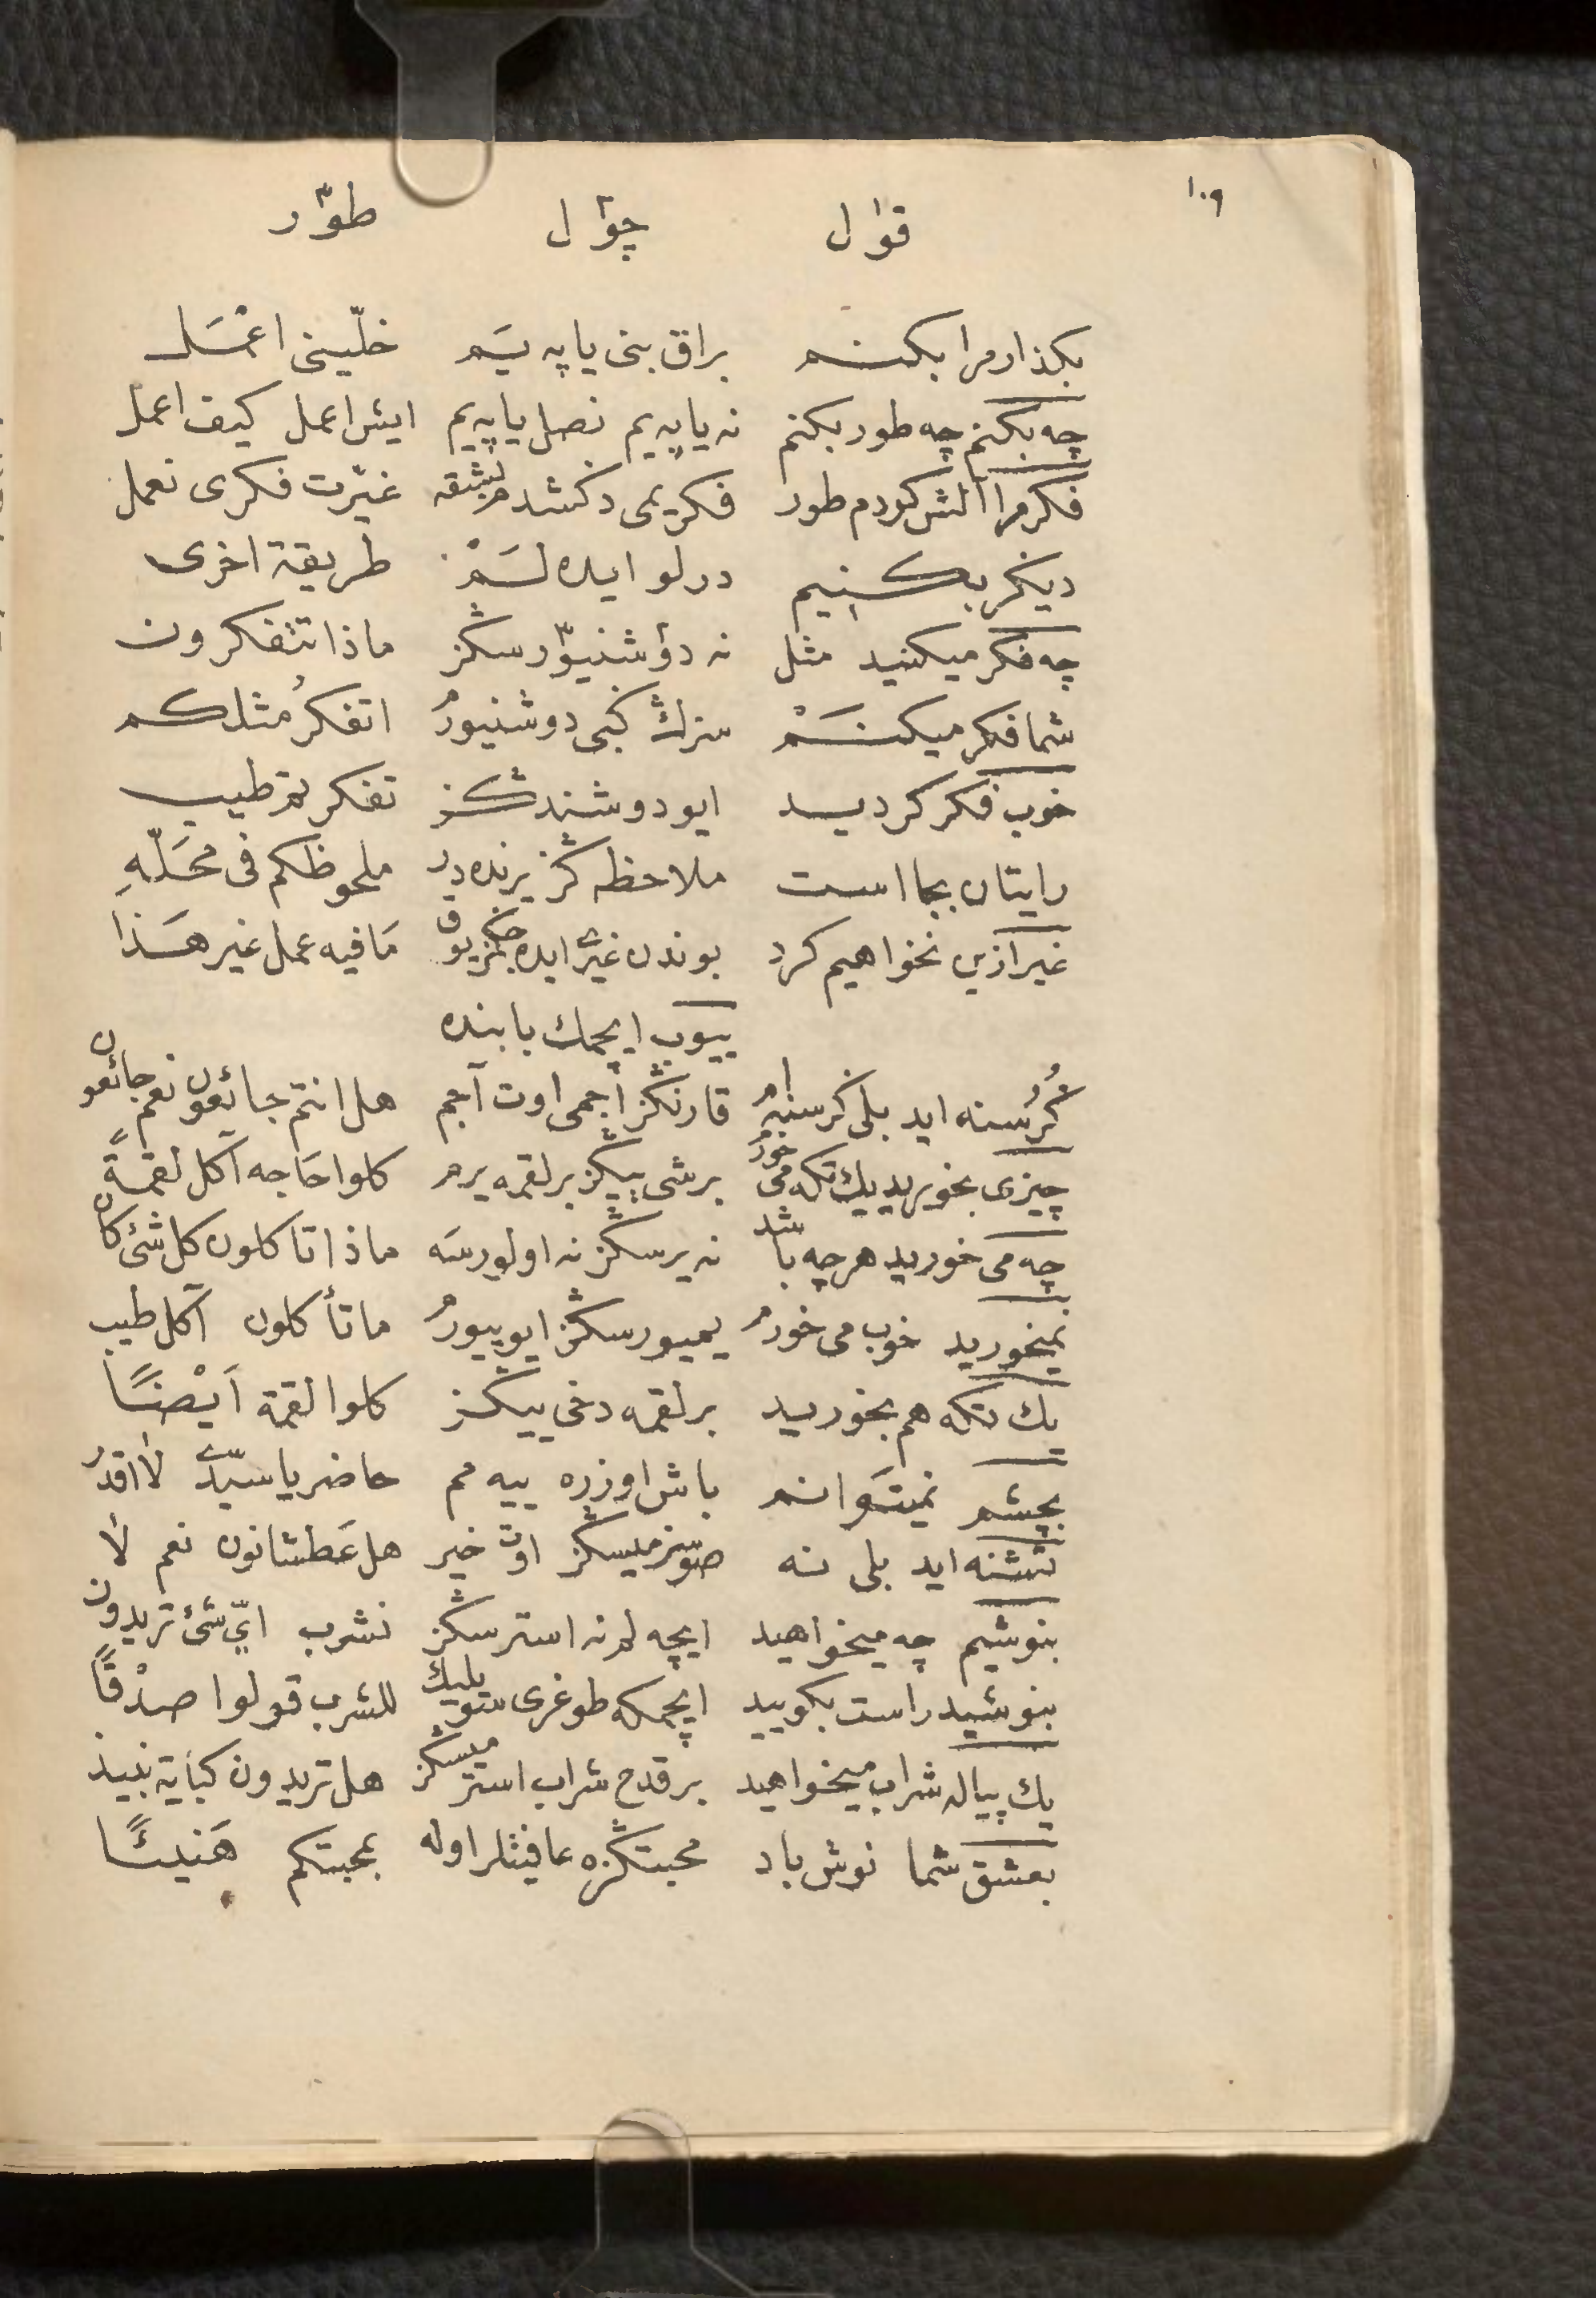 ١٠٩
قوٰل چوٰل طوّر
بكذار مرا بكنم براق بنی ياپه‌يَم خلّينی اعْمَل
چه بكنم چه طور بكنم نه ياپه‌يم نصل ياپه‌يم ايش اعمل كيف اعمل
فكر مرا آلش كردم طور فكريمی دكشدم بشقه غيّرت فكری نعمل
ديكر بكنيم درلو ايده‌لَمْ طريقة اخری
چه فكر ميكنيد مثل نه دؤشنيوّرسڭز ماذا تتفكرون
شما فكر ميكنَمْ سزڭ كبی دوشنيورم اتفكرُ مثلكم
خوب فكر كرديد ايو دوشندڭز تفكرتم طيب
رايتان بجا است ملاحظه ڭز يرنده در ملحوظكم فی محَلّهِ
غير ازين نخواهيم كرد بوندن غيری ايده‌جكمز يوق مَا فيه عمل غير هَذا
ييوب ايچمك بابنده
كُرُسنه ايد بلی كرسنه‌ام قارنڭز آجمی اوت آجم هل انتم جائعون نعم جائعون
چيزی بخوريد يك تكه می خورم برشی ييڭز برلقمه يرم كلوا حَاجه آكل لقمةً
چه می خوريد هرچه باشد نه يرسڭز نه اولورسَه ماذا تاكلون كل شئ كان
نميخوريد خوب می خورم يميورسڭز ايو ييورم ما تأكلون آكل طيب
يك تكه هم بخوريد برلقمه دخی ييڭز كلوا لقمة اَيْضًا
بچشم نميتَوانم باش اوزره ييه‌مم حاضر يا سيّدی لا اقدر
تشنه ايد بلی نه صوسزميسڭز اوت خير هل عَطشانون نعم لا
بنوشيم چه ميخواهيد ايچه‌لم نه استرسڭز نشرب ايّ شئ تريدون
بنوشيد راست بكوييد ايچمكه طوغری سويليڭ للشرب قولوا صدْقًا
يك پياله شراب ميخواهيد برقدح شراب استرميسڭز هل تريدون كباية نبيذ
بعشق شما نوش باد محبتڭزه عافيتلر اوله بمحبتكم هَنيئًا